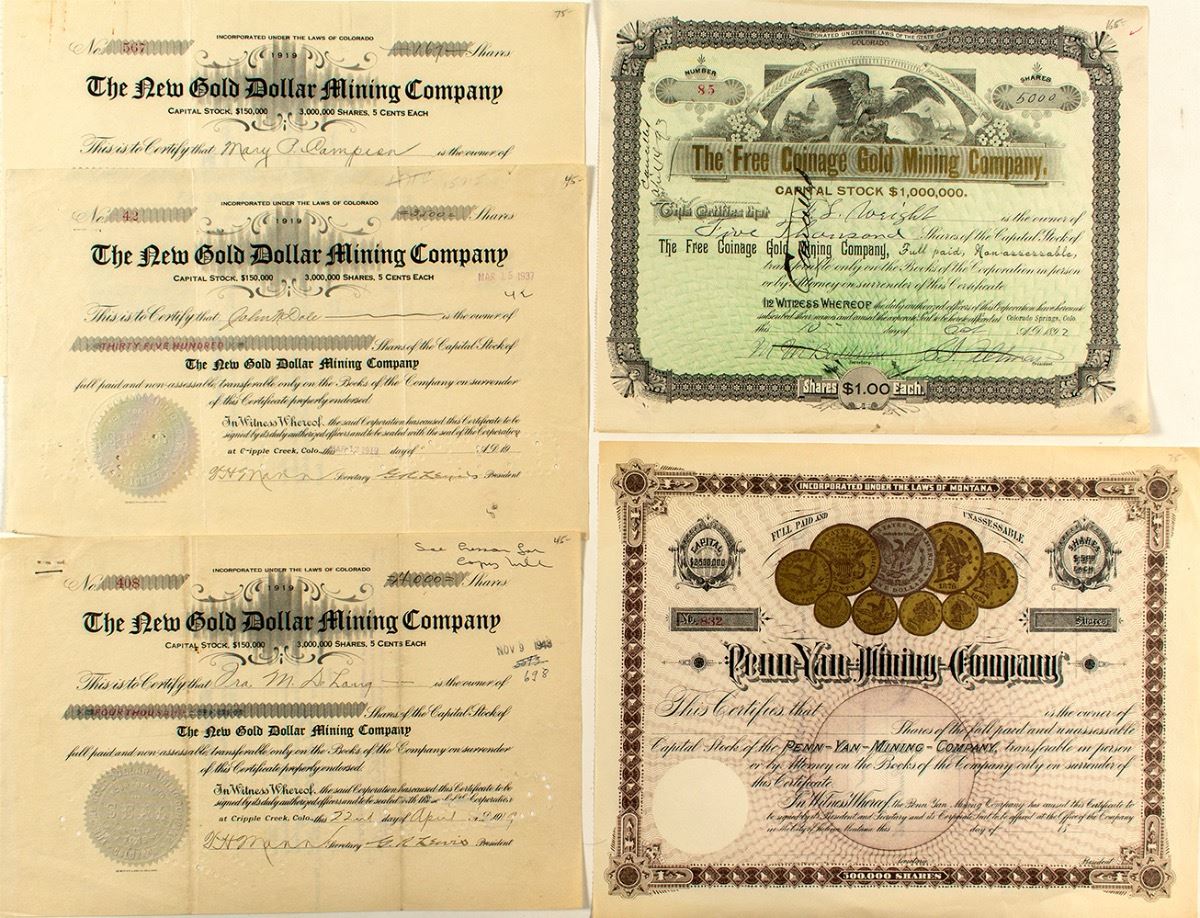 75-
INCORPORATED UNDER THE LAWS OF COLORADO
No. 567 1919 Shares
The New Gold Dollar Mining Company
CAPITAL STOCK, $150,000 3,000,000 SHARES, 5 CENTS EACH
This is to Certify that Mary P. Campion is the owner of
45-
INCORPORATED UNDER THE LAWS OF COLORADO
No. 42 1919 Shares
The New Gold Dollar Mining Company
CAPITAL STOCK, $150,000 3,000,000 SHARES, 5 CENTS EACH
MAR 15 1937
42
This is to Certify that John H Dole is the owner of
THIRTY FIVE HUNDRED Shares of the Capital Stock of
The New Gold Dollar Mining Company
full paid and non-assessable, transferable only on the Books of the Company on surrender
of this Certificate properly endorsed.
In Witness Whereof, the said Corporation has caused this Certificate to be
signed by its duly authorized officers and to be sealed with the seal of the Corporation
at Cripple Creek, Colo., this APR 12 1919 day of A.D. 19
F H Mann Secretary G R Lewis President
45-
INCORPORATED UNDER THE LAWS OF COLORADO
No. 408 1919 4,000 Shares
The New Gold Dollar Mining Company
CAPITAL STOCK, $150,000 3,000,000 SHARES, 5 CENTS EACH
NOV 9
698
This is to Certify that Ira M. DeLong is the owner of
FOUR THOUSAND Shares of the Capital Stock of
The New Gold Dollar Mining Company
full paid and non-assessable, transferable only on the Books of the Company on surrender
of this Certificate properly endorsed.
In Witness Whereof, the said Corporation has caused this Certificate to be
signed by its duly authorized officers and to be sealed with the Corporation
at Cripple Creek, Colo., this 22nd day of April 1919
F H Mann Secretary G R Lewis President
165-
INCORPORATED UNDER THE LAWS OF THE STATE OF
COLORADO
NUMBER SHARES
85 5000
The Free Coinage Gold Mining Company.
CAPITAL STOCK $1,000,000.
Cancelled
This Certifies that S. Wright is the owner of
Five Thousand Shares of the Capital Stock of
The Free Coinage Gold Mining Company, Full paid, Non assessable,
transferable only on the Books of the Corporation in person
or by Attorney on surrender of this Certificate.
IN WITNESS WHEREOF the duly authorized officers of this Corporation have hereunto
subscribed their names and caused the corporate Seal to be hereto affixed at Colorado Springs, Colo.
this 10 day of Oct A.D. 1892
Secretary President
Shares $1.00 Each.
75-
INCORPORATED UNDER THE LAWS OF MONTANA
FULL PAID AND UNASSESSABLE
CAPITAL SHARES
No. 832 Shares
Penn-Yan-Mining-Company
This Certifies that is the owner of
Shares of the full paid and unassessable
Capital Stock of the PENN-YAN-MINING-COMPANY, transferable in person
or by Attorney on the Books of the Company only on surrender of
this Certificate.
In Witness Whereof, the Penn Yan Mining Company has caused this Certificate to
be signed by its President and Secretary and its Corporate Seal to be affixed at the Office of the Company
in the City of Helena Montana this day of 18
Secretary President
500,000 SHARES